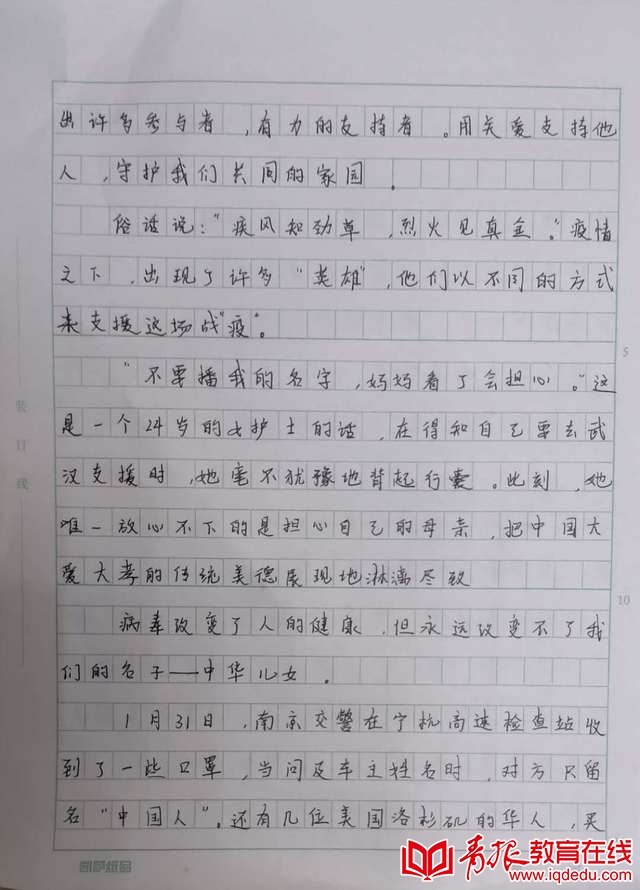 出许多参与者，有力的支持者。用关爱支持他
人，守护我们共同的家园．
俗话说：“疾风知劲草，烈火见真金。”疫情
之下，出现了许多“英雄”，他们以不同的方式
来支援这场战“疫”。
“不要播我的名字，妈妈看了会担心。”这
是一个24岁的女护士的话，在得知自己要去武
汉支援时，她毫不犹豫地背起行囊。此刻，她
唯一放心不下的是担心自己的母亲，把中国大
爱大孝的传统美德展现地淋漓尽致
病毒改变了人的健康，但永远改变不了我
们的名子——中华儿女．
1月31日，南京交警在宁杭高速检查站收
到了一些口罩，当问及车主姓名时，对方只留
名“中国人”。还有几位美国洛杉矶的华人，买
装
订
线
5
10
青报教育在线
www.iqdedu.com